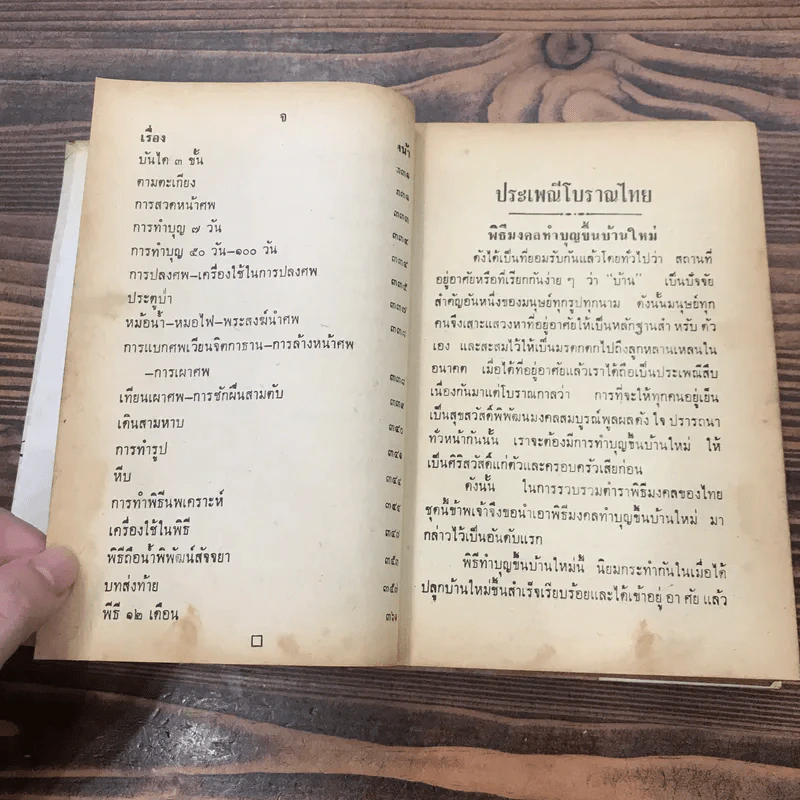 จ
เรื่อง หน้า
บันได ๓ ขั้น ๓๓๑
ตามตะเกียง ๓๓๑
การสวดหน้าศพ ๓๓๓
การทำบุญ ๗ วัน ๓๓๔
การทำบุญ ๕๐ วัน–๑๐๐ วัน ๓๓๔
การปลงศพ–เครื่องใช้ในการปลงศพ ๓๓๕
ประตูป่า ๓๓๗
หม้อน้ำ–หมอไฟ–พระสงฆ์นำศพ ๓๓๗
การแบกศพเวียนจิตกาธาน–การล้างหน้าศพ
–การเผาศพ ๓๓๘
เทียนเผาศพ–การชักผืนสามดับ ๓๓๙
เดินสามหาบ ๓๔๐
การทำรูป ๓๔๑
หีบ ๓๔๔
การทำพิธีนพเคราะห์ ๓๔๕
เครื่องใช้ในพิธี ๓๔๘
พิธีถือน้ำพิพัฒน์สัจจยา ๓๕๓
บทส่งท้าย ๓๕๙
พีธี ๑๒ เดือน ๓๖๑
ประเพณีโบราณไทย
พิธีมงคลทำบุญขึ้นบ้านใหม่
ดังได้เป็นที่ยอมรับกันแล้วโดยทั่วไปว่า สถานที่
อยู่อาศัยหรือที่เรียกกันง่าย ๆ ว่า “บ้าน” เป็นปัจจัย
สำคัญอันหนึ่งของมนุษย์ทุกรูปทุกนาม ดังนั้นมนุษย์ทุก
คนจึงเสาะแสวงหาที่อยู่อาศัยให้เป็นหลักฐานสำ หรับ ตัว
เอง และสะสมไว้ให้เป็นมรดกตกไปถึงลูกหลานเหลนใน
อนาคต เมื่อได้ที่อยู่อาศัยแล้วเราได้ถือเป็นประเพณีสืบ
เนื่องกันมาแต่โบราณกาลว่า การที่จะให้ทุกคนอยู่เย็น
เป็นสุขสวัสดิ์พิพัฒนมงคลสมบูรณ์พูลผลดัง ใจ ปรารถนา
ทั่วหน้ากันนั้น เราจะต้องมีการทำบุญขึ้นบ้านใหม่ ให้
เป็นศิริสวัสดิ์แก่ตัวและครอบครัวเสียก่อน
ดังนั้น ในการรวบรวมตำราพิธีมงคลของไทย
ชุดนี้ข้าพเจ้าจึงขอนำเอาพิธีมงคลทำบุญขึ้นบ้านใหม่ มา
กล่าวไว้เป็นอันดับแรก
พิธีทำบุญขึ้นบ้านใหม่นี้ นิยมกระทำกันในเมื่อได้
ปลูกบ้านใหม่ขึ้นสำเร็จเรียบร้อยและได้เข้าอยู่ อา ศัย แล้ว